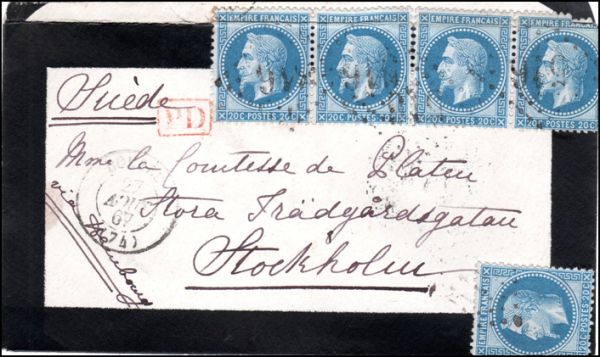 EMPIRE FRANÇAIS EMPIRE FRANÇAIS EMPIRE FRANÇAIS EMPIRE FRANÇAIS
20C POSTES 20C 20C POSTES 20C 20C POSTES 20C 20C POSTES 20C
Suède
PD
Mme la Comtesse de Platen
Stora Trädgårdsgatan
Stockholm
via Hambourg
27
AOUT
67
(74)
EMPIRE FRANÇAIS
20C POSTES 20C